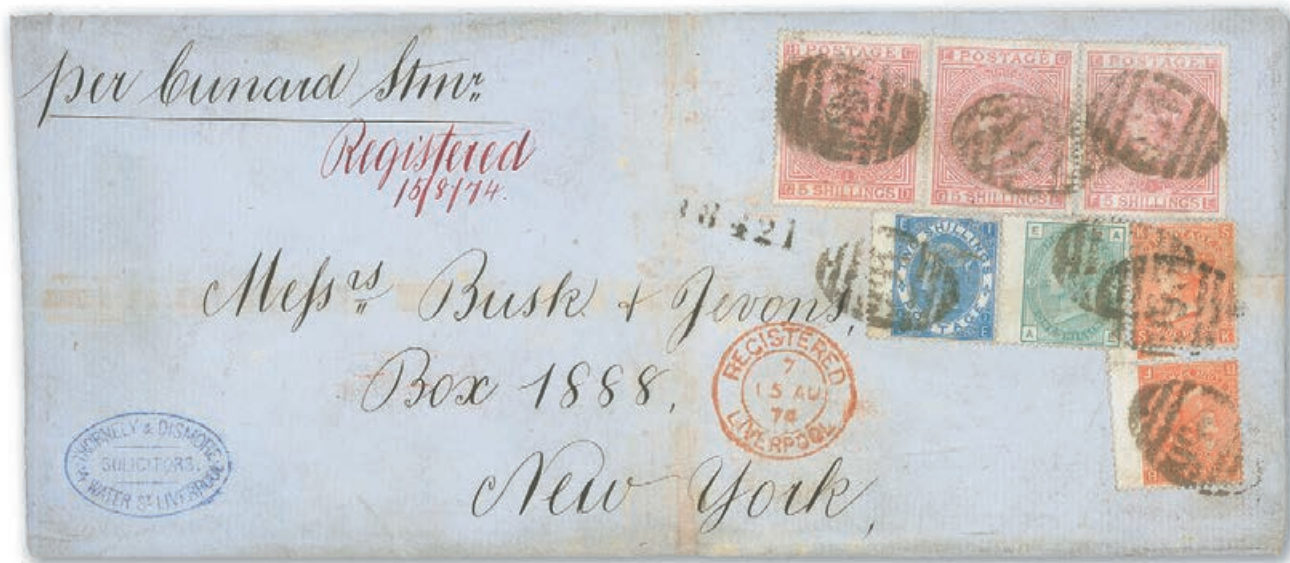 per Cunard Stmr.
Registered
15/8/74.
POSTAGE
POSTAGE
POSTAGE
5 SHILLINGS
5 SHILLINGS
5 SHILLINGS
8421
SHILLINGS
E A
A E
Messrs Busk & Jevons,
Box 1888,
New York,
REGISTERED
7
15 AU
74
LIVERPOOL
THORNELY & DISMORE
SOLICITORS.
WATER ST. LIVERPOOL